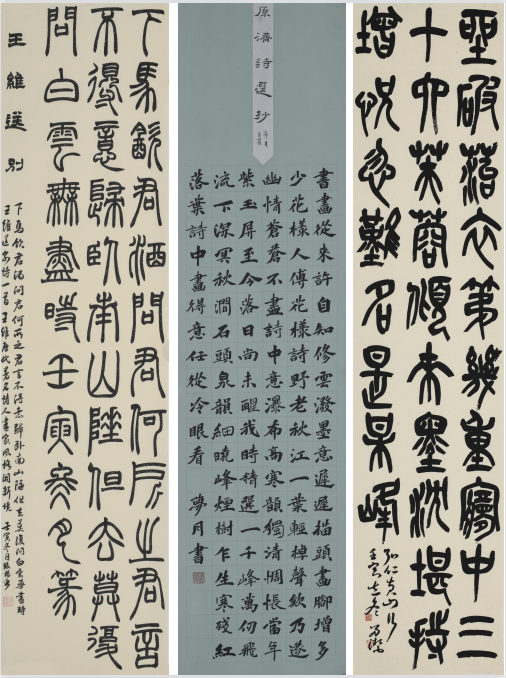 坐破苔衣第幾重夢中三
十六芙蓉傾來墨瀋堪持
贈怳忽難名是某峰
弘仁黃山詩
壬寅冬
原濟詩選抄
書畫從來許自知修雲潑墨意遲遲描頭畫腳增多
少花樣人傳花樣詩野老秋江一葉輕棹聲欸乃遂
幽情蒼蒼不盡詩中意瀑布高寒韻獨清惆悵當年
紫玉屏至今落日尚未醒我時精選一千峰萬仞飛
流下深冥秋澗石頭泉韻細曉峰煙樹乍生寒殘紅
落葉詩中畫得意任從冷眼看 夢月書
下馬飲君酒問君何所之君言
不得意歸臥南山陲但去莫復
問白雲無盡時壬寅冬月篆
王維送別
下馬飲君酒問君何所之君言不得意歸臥南山陲但去莫復問白雲無盡時
王維送別詩一首 王維唐代著名詩人畫家風格開新境 壬寅冬月